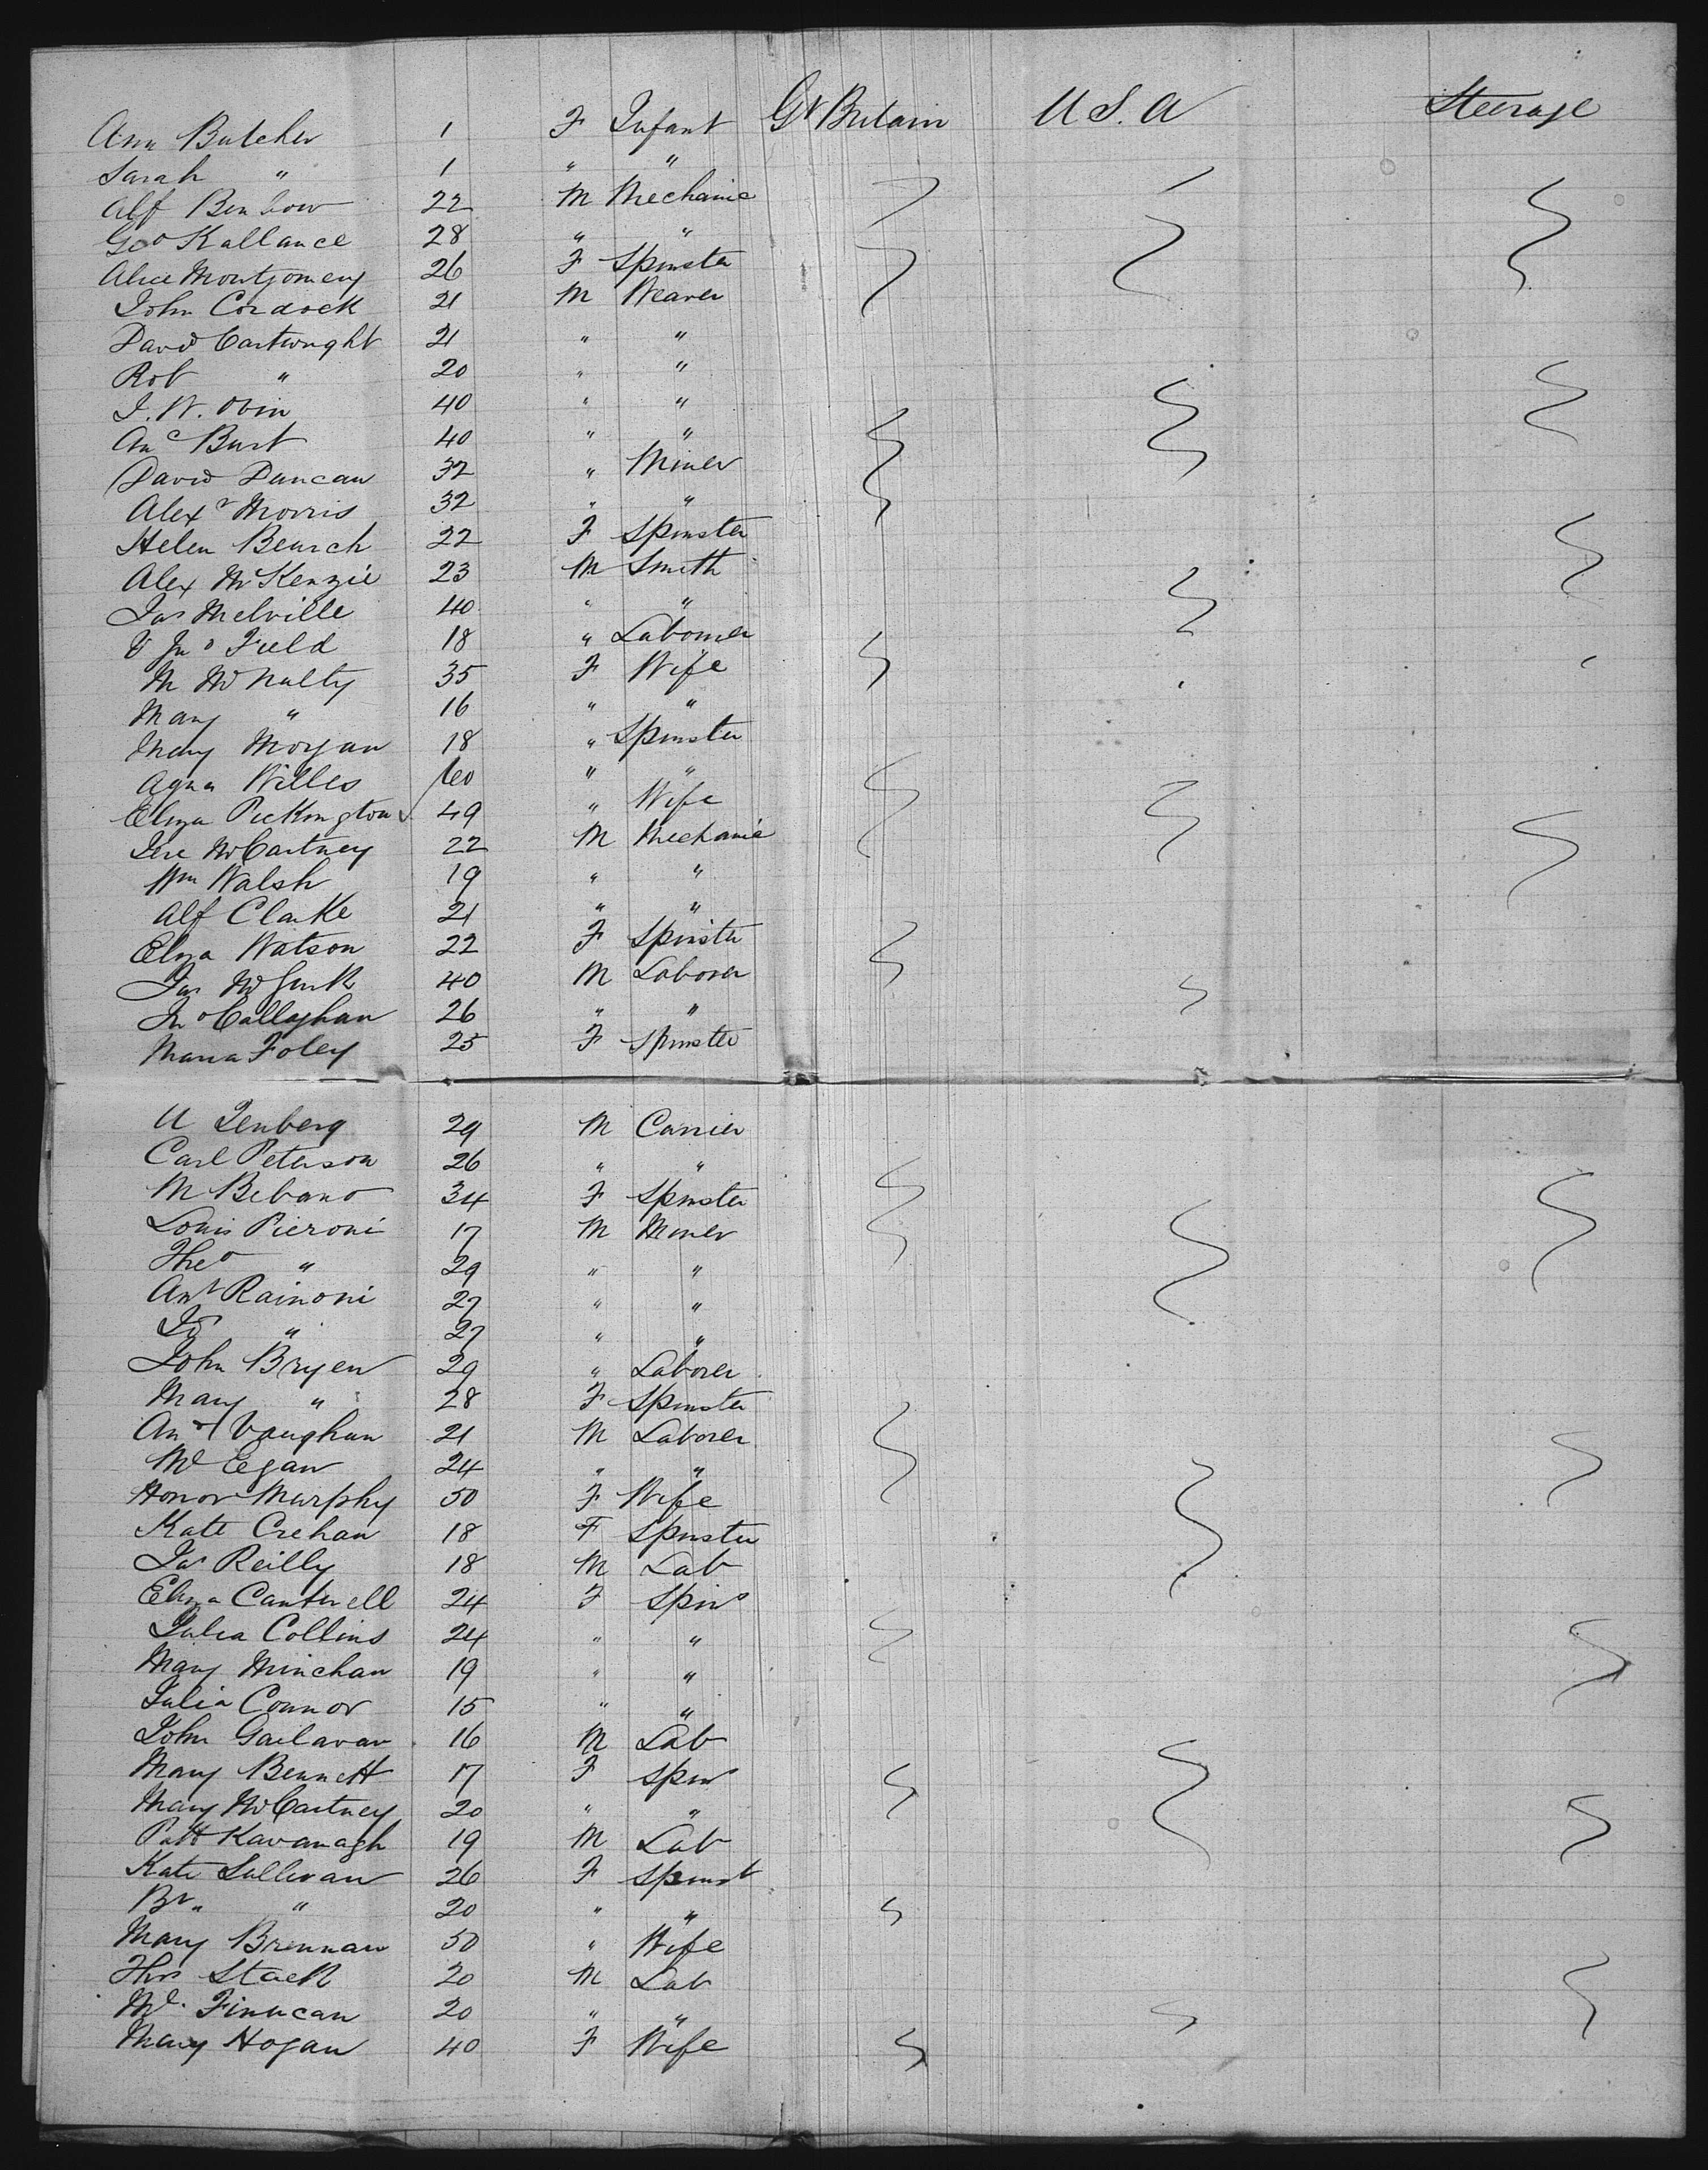 Ann Butcher 1 F Infant Gt Britain U S. A Steerage
Sarah " 1 " "
Alf Benbow 22 M Mechanic
Geo Kallance 28 " "
Alice Montgomery 26 F Spinster
John Cordock 21 M Weaver
David Cartwright 21 " "
Rob " 20 " "
J. W. Obin 40 " "
Burt 40 " "
David Duncan 32 " Miner
Alexr Morris 32 " "
Helen Beurch 22 F Spinster
Alex McKenzie 23 M Smith
Jas Melville 40 " "
Jno Field 18 " Labourer
M McNulty 35 F Wife
Mary " 16 " "
Mary Morgan 18 " Spinster
Agna Willes " "
Eliza Pickington 49 " Wife
Jere McCartney 22 M Mechanic
Wm Walsh 19 " "
Alf Clarke 21 " "
Eliza Watson 22 F Spinster
Jas McGurk 40 M Laborer
Jno Callaghan 26 " "
Maria Foley 25 F Spinster
A Lenberg 29 M Carrier
Carl Peterson 26 " "
M Bebano 34 F Spinster
Louis Pieroni 17 M Miner
Theo " 29 " "
Ant Rainoni 27 " "
" 27 " "
John Bryen 29 " Laborer
Mary " 28 F Spinster
And Vaughan 21 M Laborer
Ml Egan 24 " "
Honor Murphy 50 F Wife
Kate Crehan 18 F Spinster
Jas Reilly 18 M Lab
Eliza Cantwell 24 F Spins
Julia Collins 24 " "
Mary Minchan 19 " "
Julia Connor 15 " "
John Gailavan 16 M Lab
Mary Bennett 17 F Spin
Mary McCartney 20 " "
Patt Kavanagh 19 M Lab
Kate Sullivan 26 F Spinst
Br " 20 " "
Mary Brennan 50 " Wife
Thos Stack 20 M Lab
Ml. Finucan 20 " "
Mary Hogan 40 F Wife